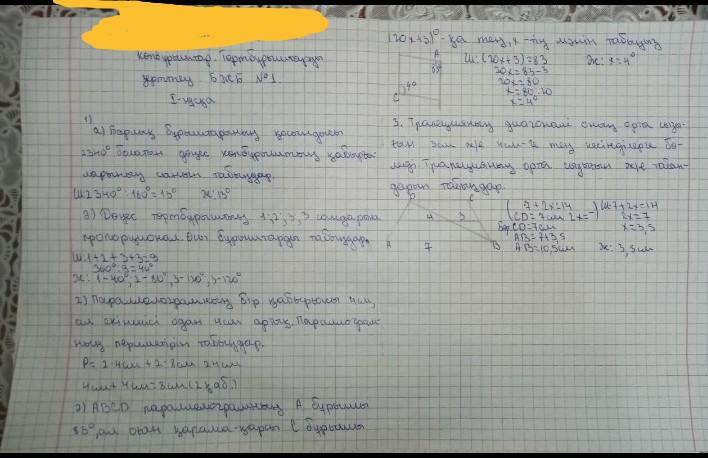 Көпбұрыштар. Төртбұрыштарды
зерттеу. БЖБ №1.
I-нұсқа
1)
а) Барлық бұрыштарының қосындысы
2340° болатын дөңес көпбұрыштың қабырға-
ларының санын табыңдар.
Ш: 2340° : 180° = 13° Ж: 13°
Дөңес төртбұрыштың 1; 2; 3; 3 сандарына
пропорционал. Осы бұрыштарды табыңдар.
Ш: 1+2+3+3=9
360°:9=40°
Ж: 1-40°, 2-80°, 3-120°, 3-120°
2) Параллелограмның бір қабырғасы 4 см,
ал екіншісі одан 4 см артық. Параллограм-
ның периметрін табыңдар.
P= 2·4см + 2·8см 24см
4см+4см=8см (2 қаб.)
ABCD параллелограмның A бұрышы
83°, ал оған қарама-қарсы C бұрышы
(20x+3)°-қа тең, x-тің мәнін табыңыз
A
83°
C
Ш: (20x+3)=83
20x=83-3
20x=80
x=80:20
x=4°
Ж: x=4°
3. Трапецияның диагоналі оның орта сызы-
ғын 3см және 4см-ге тең кесінділерге бө-
леді. Трапецияның орта сызығын және табан-
дарын табыңдар.
D C
4 3
A 7 B
7+2x=14
CD=7см 2x=7
CD=7см
AB=7+3,5
AB=10,5см
Ш: 7+2x=14
2x=7
x=3,5
Ж: 3,5см